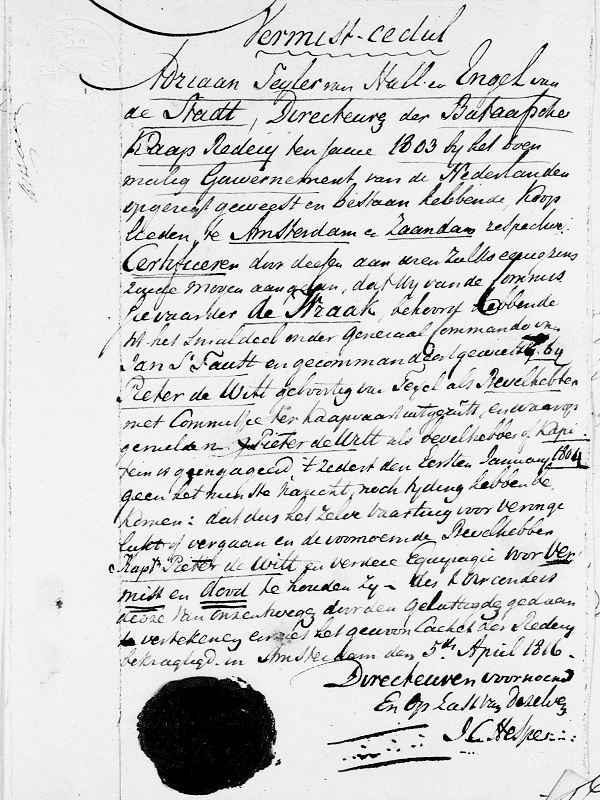 Vermist-cedul
Adriaan Teyler van Hall en Engel van
de Stadt, Directeurs der Bataafsche
Kaap Rederij ten Jaare 1803 by het toen
malig Gouvernement van de Nederlanden
opgerecht geweest en bestaan hebbende, Koop
lieden, te Amsterdam en Zaandam respective.
Certificeren door deesen aan eren zulks eenigzens
zoude mogen aangaan, dat Wy van de Commis
sievaarder de Wraak, behoord hebbende
tot het Smaldeel onder Generaal Commando van
Jan St. Faust en gecommandeert geweest by
Pieter de Witt geboortig van Texel als Bevelhebber
met Commissie ter kaapvaart uitgerust, en waarop
gemelden Pieter de Witt als bevelhebber of Kapi
tein is geengageerd 't zedert den Eersten January 1804
geen het minste naricht, noch tyding hebben be
komen: dat dus het zelve Vaartuig voor veronge
lukt of vergaan en de voornoemde Bevelhebber
Kapt. Pieter de Witt en verdere Equipagie voor Ver
mist en dood te houden zy - des t'oirconden
deeze van onzentwegen door den gedaan
te vertekenen en met het gewoon Cachet der Rederij
bekragtigd. in Amsterdam den 5den April 1816.
Directeuren voornoemd
En op Last van dezelven
J C Hesper